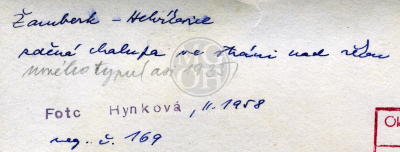 Žamberk – Helvíkovice
ročná chalupa ve stráni nad
nového typu
Foto Hynková, II. 1958
neg. č. 169